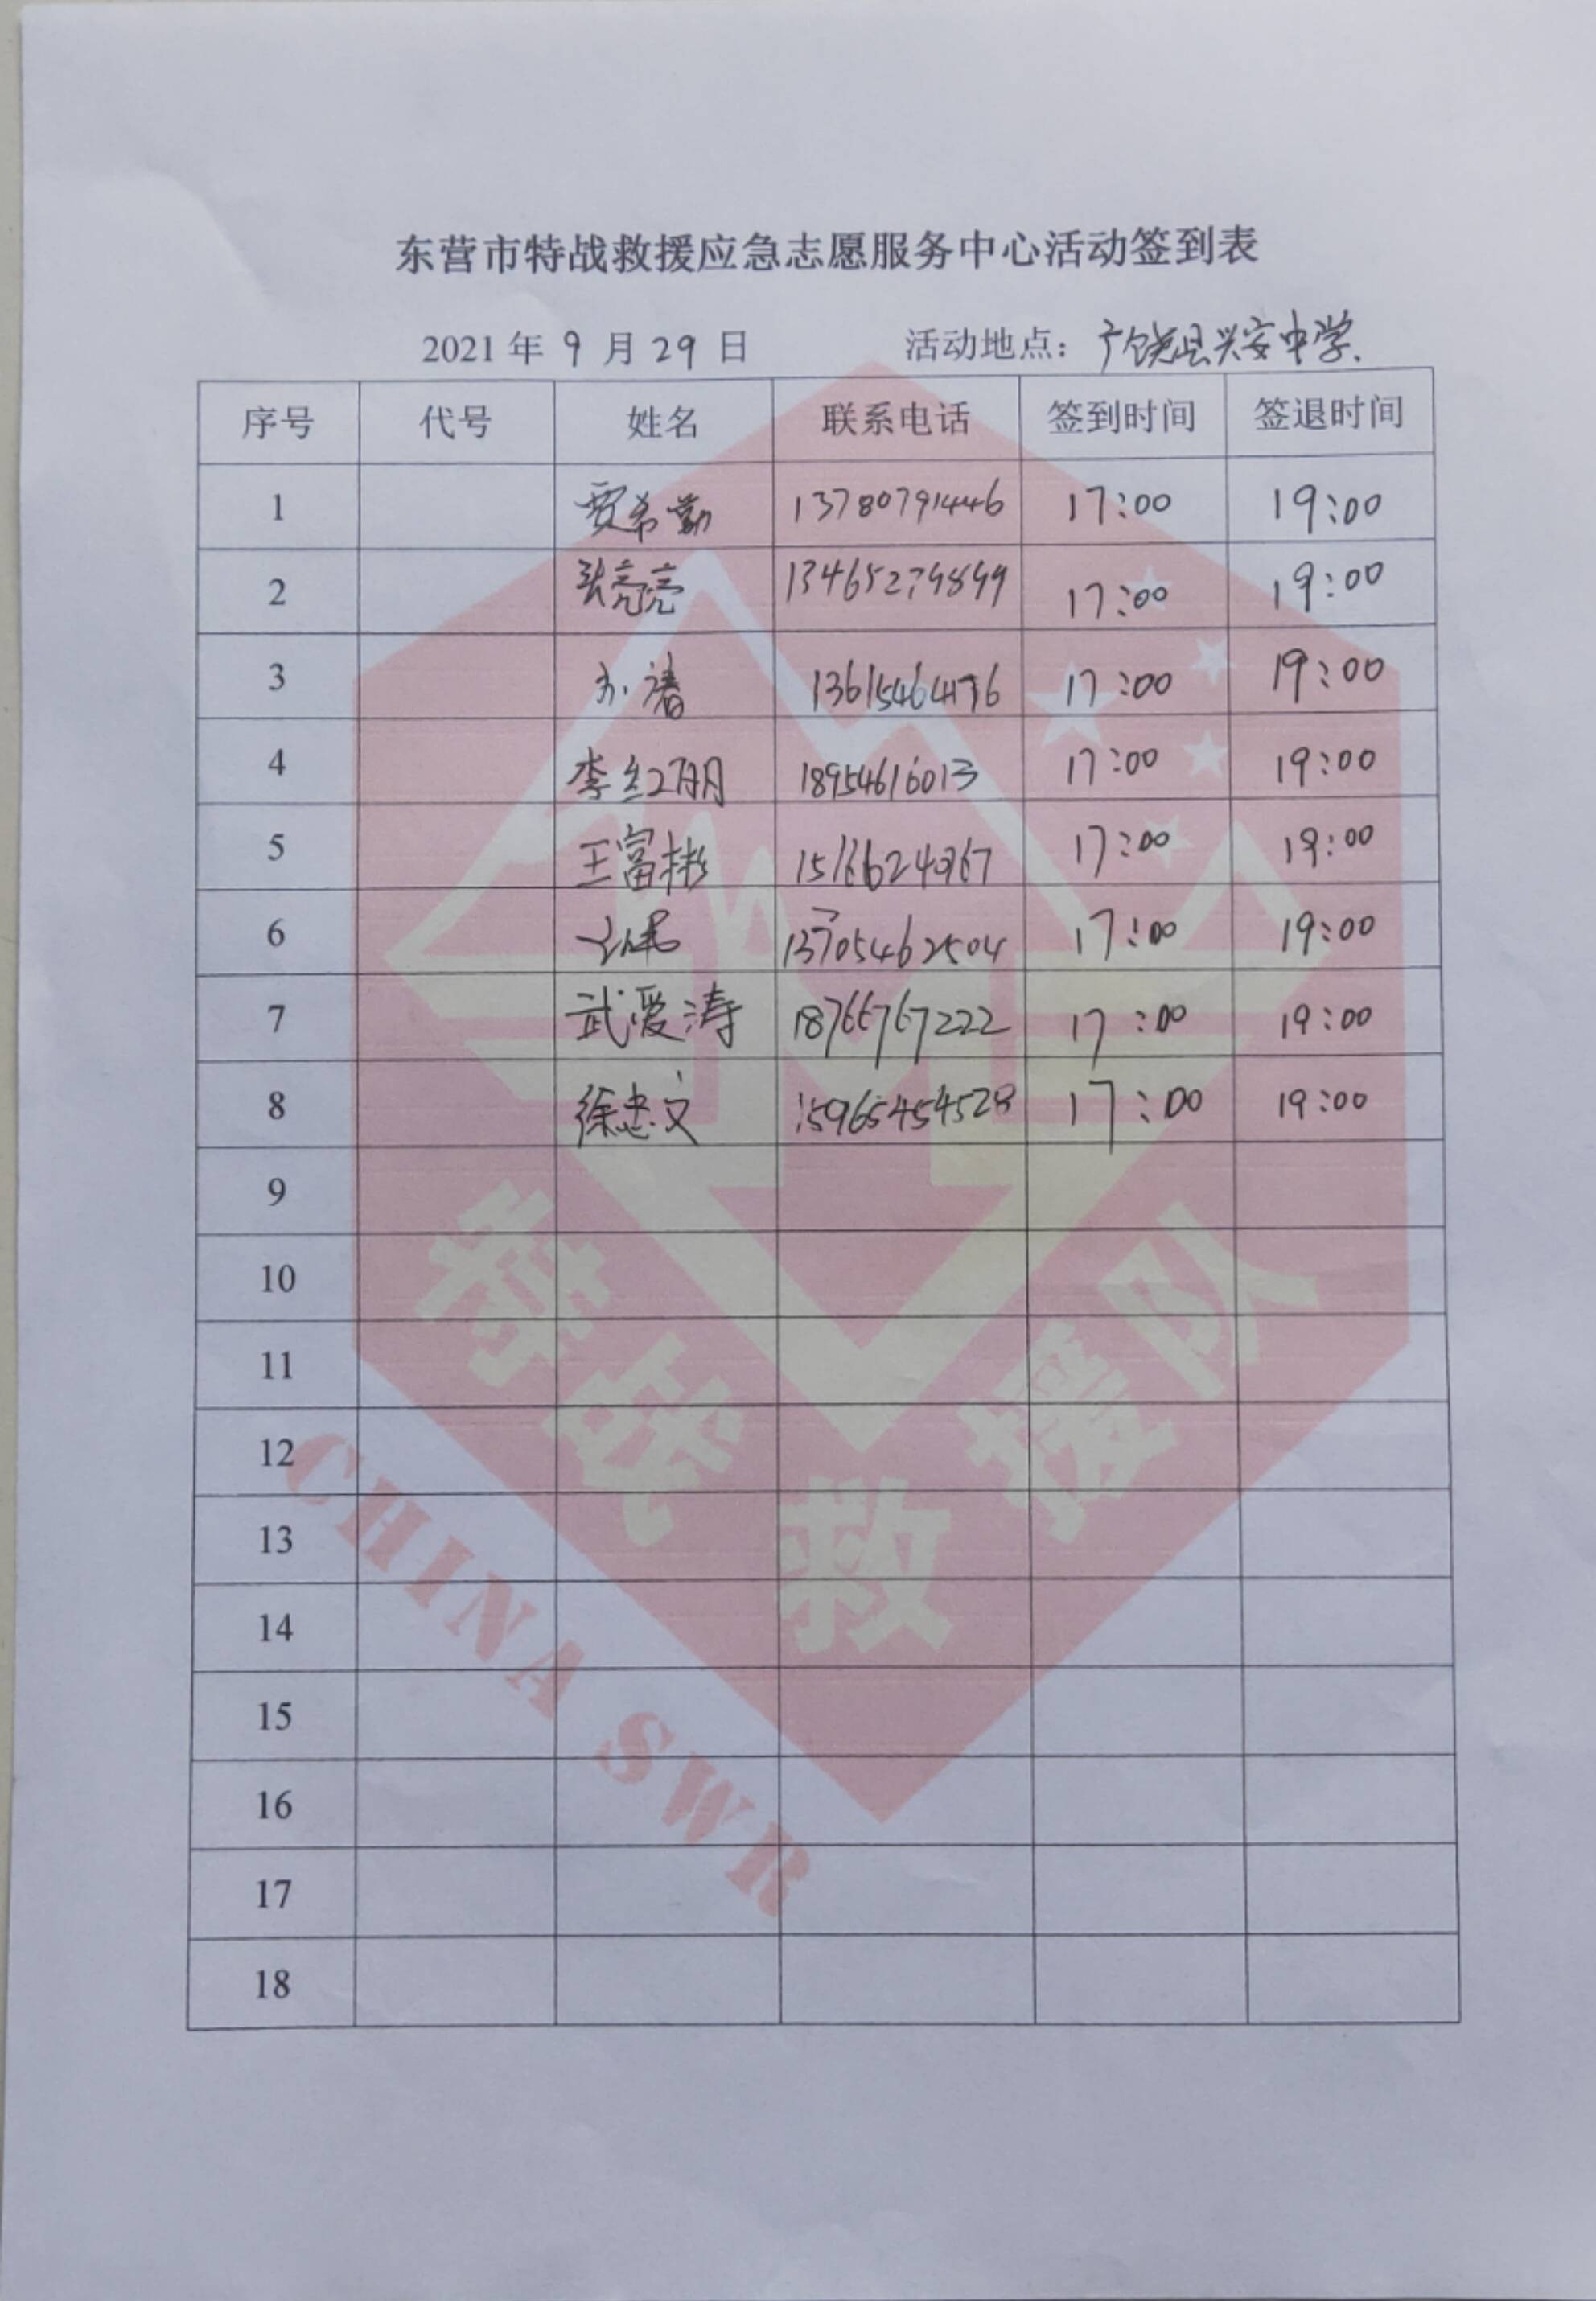 东营市特战救援应急志愿服务中心活动签到表
2021年9月29日 活动地点：广饶县兴安中学.
序号 代号 姓名 联系电话 签到时间 签退时间
1 贾希勤 13780791446 17:00 19:00
2 张亮亮 13465279899 17:00 19:00
3 17:00 19:00
4 李红朋 18954616013 17:00 19:00
5 王富彬 15166624967 17:00 19:00
6 13705462504 17:00 19:00
7 武爱涛 18766767222 17:00 19:00
8 徐忠文 15965454528 17:00 19:00
9
10
11
12
13
14
15
16
17
18
特战救援队
CHINA SWR